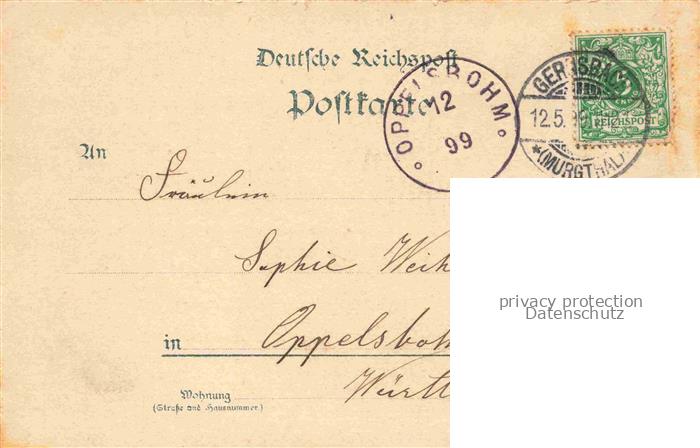 Deutsche Reichspost
Postkarte
OPPELSBOHM
12
99
GERNSBACH
12.5.99
*(MURGTHAL)
REICHSPOST
An
Fräulein
Sophie Weih
in Oppelsboh
Württ
Wohnung
(Straße und Hausnummer.)
privacy protection
Datenschutz